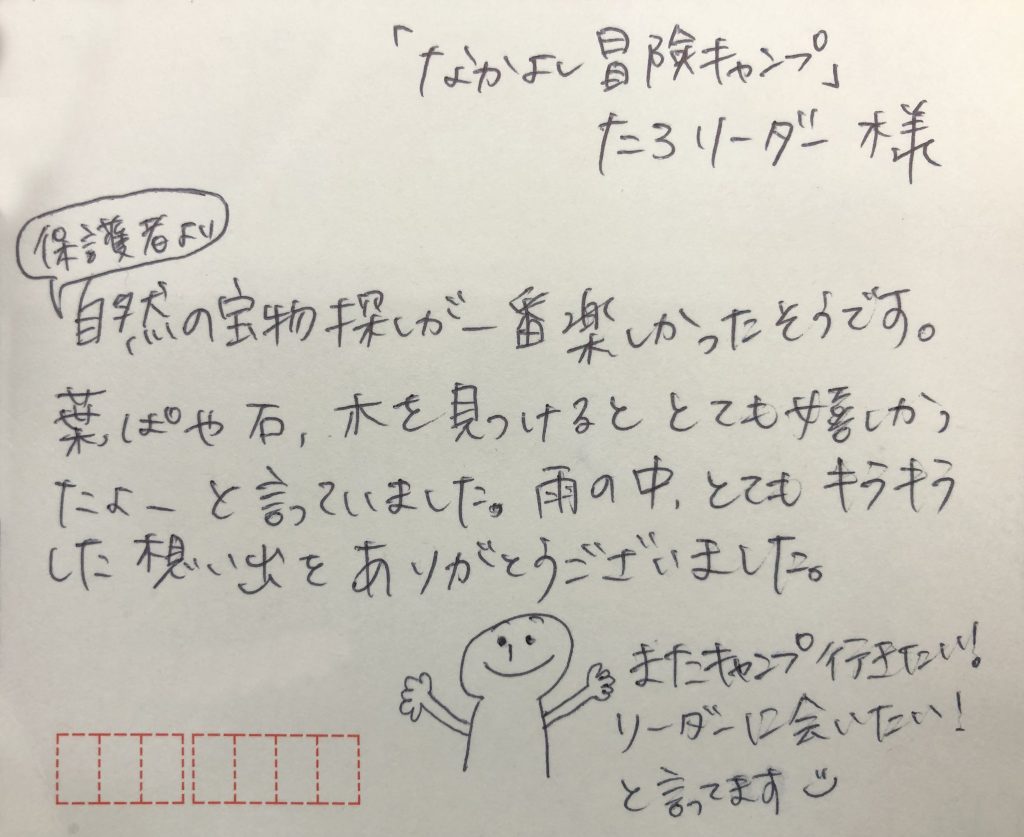 「なかよし冒険キャンプ」
たろリーダー 様
保護者より
自然の宝物探しが一番楽しかったそうです。
葉っぱや石、木を見つけると とても嬉しかっ
たよー と言っていました。雨の中、とてもキラキラ
した想い出を ありがとうございました。
またキャンプ行きたい!
リーダーに会いたい!
と言ってます